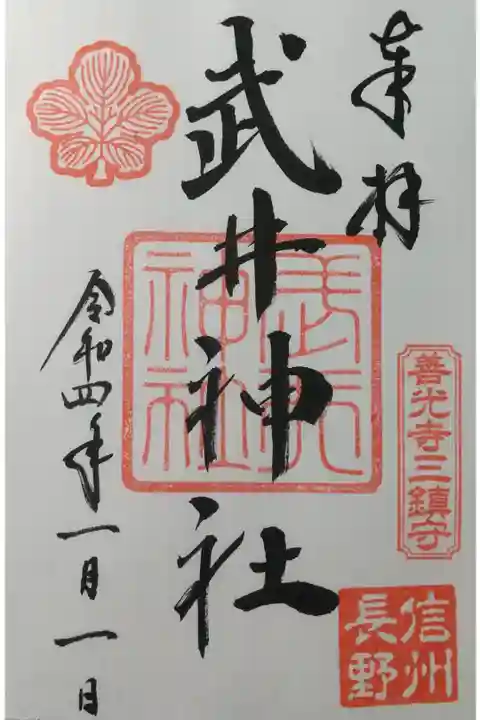 奉拝
善光寺三鎮守
信州
長野
武井神社
令和四年一月一日